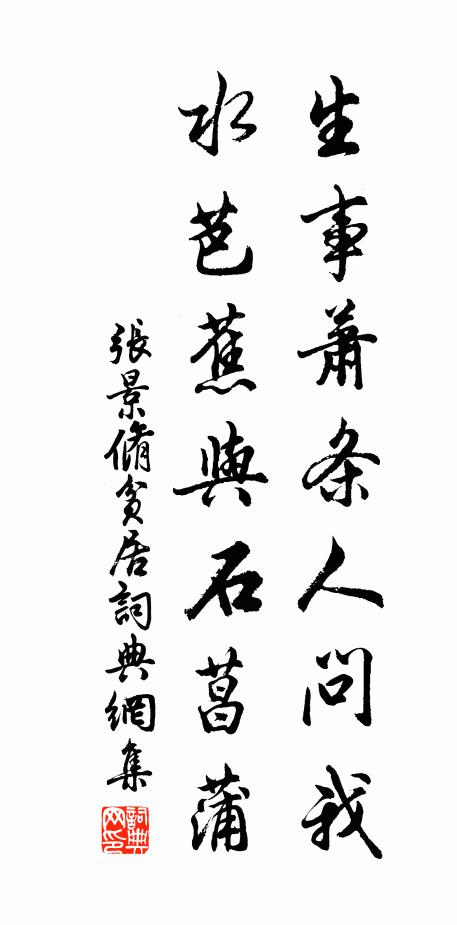 生事蕭条人問我
水芭蕉與石菖蒲
張景脩貧居詞典網集
詞典网印